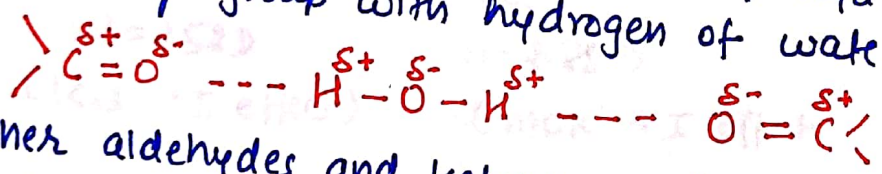 group with hydrogen of wate
C^δ+ = O^δ- --- H^δ+ - O^δ- - H^δ+ --- O^δ- = C^δ+
her aldehydes and